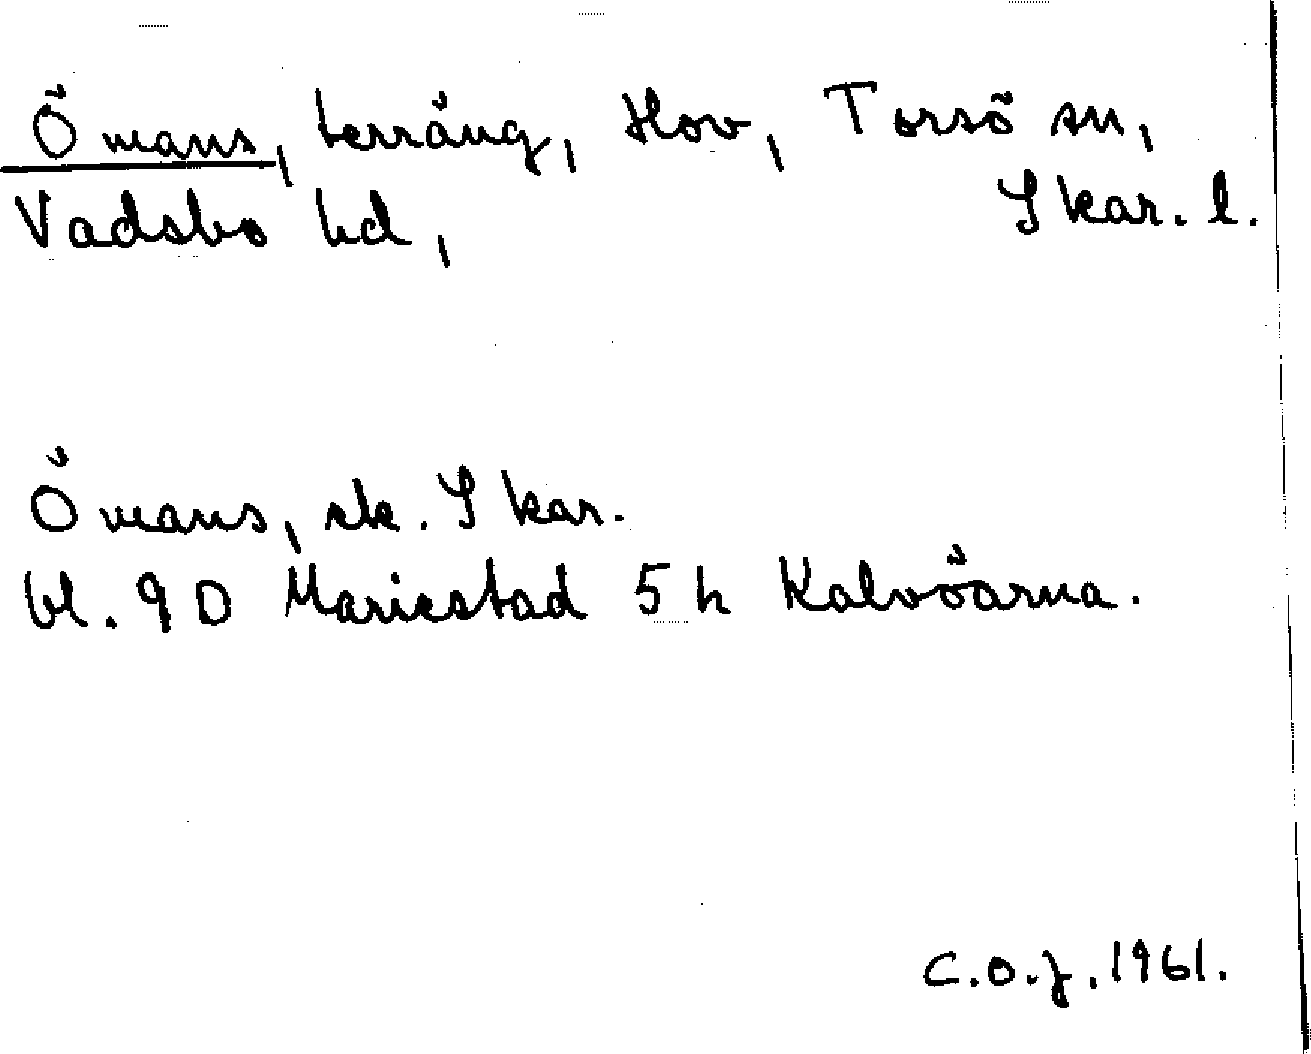 Ömans, terräng, Hov, Torsö sn,
Vadsbo hd, Skar. l.
Ömans, ek. Skar.
bl. 9D Mariestad 5h Kalvöarna.
C.O.J. 1961.